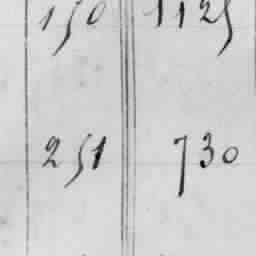 150 1125
251 730